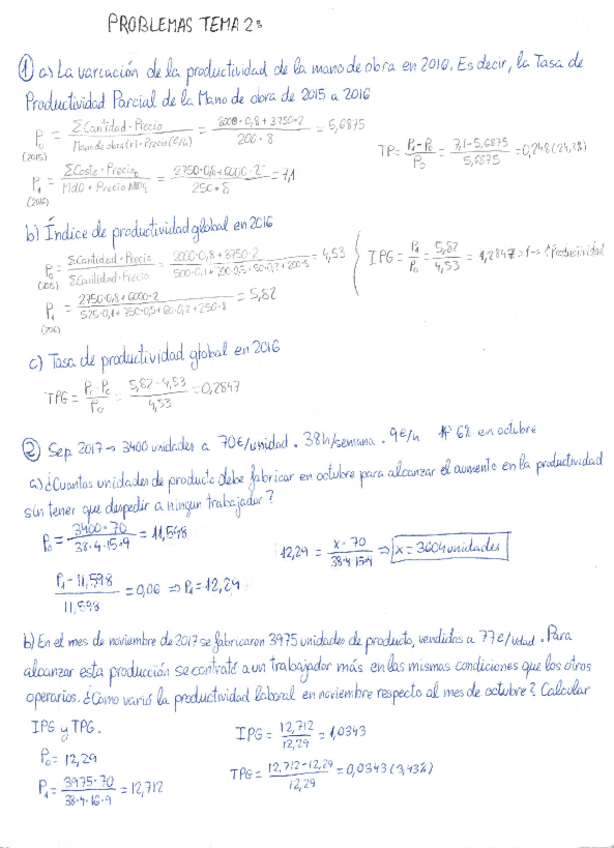 PROBLEMAS TEMA 2:
① a) La variación de la productividad de la mano de obra en 2016. Es decir, la Tasa de
Productividad Parcial de la Mano de obra de 2015 a 2016
P₀ = ΣCantidad · Precio / Mano de obra (H) · Precio (€/h) = 2000 · 0,8 + 3750 · 2 / 200 · 8 = 5,6875
(2015)
TP = P₁ - P₀ / P₀ = 7,1 - 5,6875 / 5,6875 = 0,248 (24,8%)
P₁ = ΣCoste · Precio / MdO · Precio = 2750 · 0,8 + 6000 · 2 / 250 · 8 = 7,1
(2016)
b) Índice de productividad global en 2016
P₀ = ΣCantidad · Precio / ΣCantidad · Precio = 2000 · 0,8 + 3750 · 2 / 500 · 0,1 + 700 · 0,5 + 50 · 0,2 + 200 · 8 = 4,53
(2015)
IPG = P₁ / P₀ = 5,82 / 4,53 = 1,2847 > 1 → ↑Productividad
P₁ = 2750 · 0,8 + 6000 · 2 / 525 · 0,1 + 750 · 0,5 + 60 · 0,2 + 250 · 8 = 5,82
(2016)
c) Tasa de productividad global en 2016
TPG = P₁ - P₀ / P₀ = 5,82 - 4,53 / 4,53 = 0,2847
② Sep 2017 → 3400 unidades a 70€/unidad. 38h/semana. 9€/h ↑P 6% en octubre
a) ¿Cuantas unidades de producto debe fabricar en octubre para alcanzar el aumento en la productividad
sin tener que despedir a ningun trabajador?
P₀ = 3400 · 70 / 38 · 4 · 15 · 9 = 11,598
12,29 = x · 70 / 38 · 4 · 15 · 9 ⇒ x = 3604 unidades
P₁ - 11,598 / 11,598 = 0,06 ⇒ P₁ = 12,29
b) En el mes de noviembre de 2017 se fabricaron 3975 unidades de producto, vendidas a 77€/udad. Para
alcanzar esta producción se contrató a un trabajador más en las mismas condiciones que los otros
operarios. ¿Como varió la productividad laboral en noviembre respecto al mes de octubre? Calcular
IPG y TPG.
IPG = 12,712 / 12,29 = 1,0343
P₀ = 12,29
P₁ = 3975 · 70 / 38 · 4 · 16 · 9 = 12,712
TPG = 12,712 - 12,29 / 12,29 = 0,0343 (3,43%)